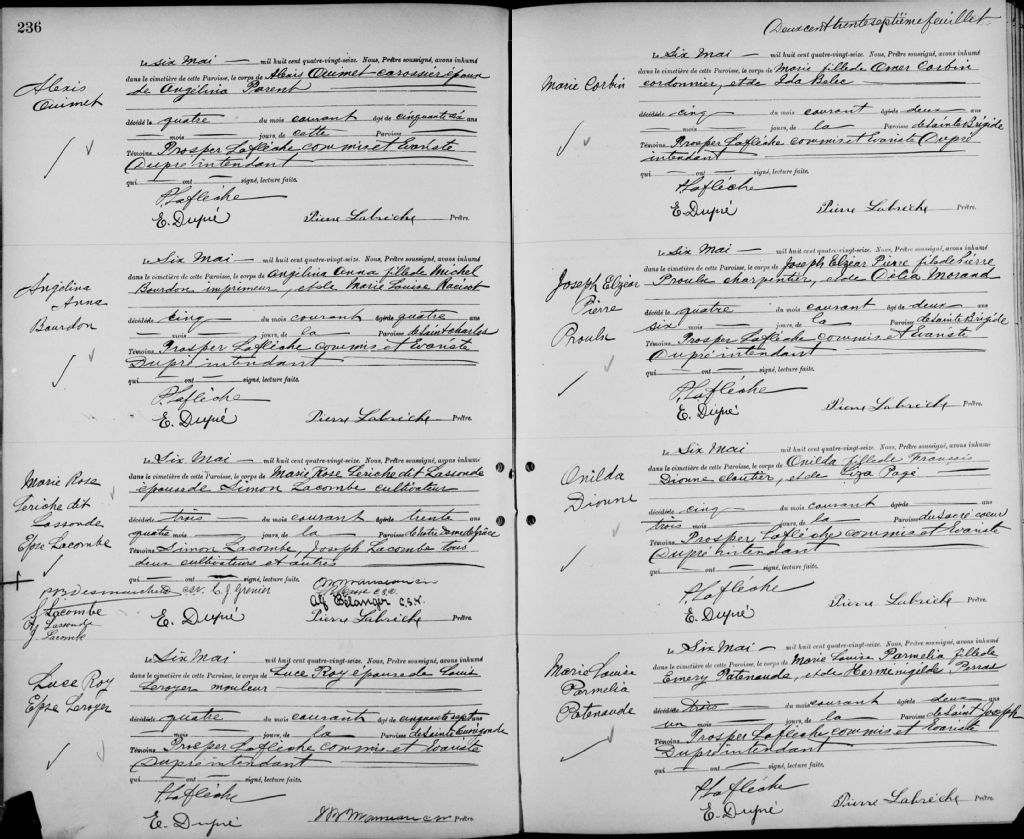 236
Alexis
Ouimet
Le Six Mai — mil huit cent quatre-vingt-seize. Nous, Prêtre soussigné, avons inhumé
dans le cimetière de cette Paroisse, le corps de Alexis Ouimet carossier époux
de Angélina Parent
décédé le quatre du mois courant âgé de cinquante six
mois jours, de cette Paroisse
Témoins Prosper Laflèche commis et Evariste
Dupré intendant
qui — ont — signé, lecture faite.
P. Laflèche
E. Dupré Pierre Labrèche Prêtre.
Angélina
Anna
Bourdon
Le Six Mai — mil huit cent quatre-vingt-seize. Nous, Prêtre soussigné, avons inhumé
dans le cimetière de cette Paroisse, le corps de Angélina Anna fille de Michel
Bourdon imprimeur, et de Marie Louise Racicot
décédée cinq du mois courant âgée quatre ans
mois jours, de la Paroisse de Saint Charles
Témoins Prosper Laflèche commis et Evariste
Dupré intendant
qui — ont — signé, lecture faite.
P. Laflèche
E. Dupré Pierre Labrèche Prêtre.
Marie Rose
Leriche dit
Lassonde
Epse Lacombe
Le Six Mai — mil huit cent quatre-vingt-seize. Nous, Prêtre soussigné, avons inhumé
dans le cimetière de cette Paroisse, le corps de Marie Rose Leriche dit Lassonde
épouse de Simon Lacombe cultivateur
décédée trois du mois courant âgée de trente ans
quatre mois jours, de la Paroisse de Notre Dame de Grâce
Témoins Simon Lacombe, Joseph Lacombe tous
deux cultivateurs et autres
qui — ont — signé, lecture faite.
E. J. Grenier
J. Lacombe Alf Bélanger C.S.V.
Lassonde E. Dupré Pierre Labrèche Prêtre.
J Lacombe
Luce Roy
Epse Leroyer
Le Six Mai mil huit cent quatre-vingt-seize. Nous, Prêtre soussigné, avons inhumé
dans le cimetière de cette Paroisse, le corps de Luce Roy épouse de Louis
Leroyer mouleur
décédée quatre du mois courant âgée cinquante sept ans
mois jours, de la Paroisse de Sainte Cunégonde
Témoins Prosper Laflèche commis et Evariste
Dupré intendant
qui — ont — signé, lecture faite.
P. Laflèche
E. Dupré
Deux cent trente septième feuillet.
Marie Corbin
Le Six Mai — mil huit cent quatre-vingt-seize. Nous, Prêtre soussigné, avons inhumé
dans le cimetière de cette Paroisse, le corps de Marie fille de Omer Corbin
cordonnier, et de Ida Belec
décédée cinq du mois courant âgée deux ans
mois jours, de la Paroisse de Sainte Brigide
Témoins Prosper Laflèche commis et Evariste Dupré
intendant
qui — ont — signé, lecture faite.
P. Laflèche
E. Dupré Pierre Labrèche Prêtre.
Joseph Elzéar
Pierre
Proulx
Le Six Mai — mil huit cent quatre-vingt-seize. Nous, Prêtre soussigné, avons inhumé
dans le cimetière de cette Paroisse, le corps de Joseph Elzéar Pierre fils de Pierre
Proulx charpentier, et de Délia Morand
décédé le quatre du mois courant âgé de deux ans
six mois jours, de la Paroisse de Sainte Brigide
Témoins Prosper Laflèche commis et Evariste
Dupré intendant
qui — ont — signé, lecture faite.
P. Laflèche
E. Dupré Pierre Labrèche Prêtre.
Onilda
Dionne
Le Six Mai mil huit cent quatre-vingt-seize. Nous, Prêtre soussigné, avons inhumé
dans le cimetière de cette Paroisse, le corps de Onilda fille de François
Dionne cloutier, et de Liza Pagé
décédée cinq du mois courant âgée de
trois mois jours, de la Paroisse du Sacré coeur
Témoins Prosper Laflèche commis et Evariste
Dupré intendant
qui — ont — signé, lecture faite.
P. Laflèche
E. Dupré Pierre Labrèche Prêtre.
Marie Louise
Parmelia
Patenaude
Le Six Mai — mil huit cent quatre-vingt-seize. Nous, Prêtre soussigné, avons inhumé
dans le cimetière de cette Paroisse, le corps de Marie Louise Parmelia fille de
Emery Patenaude, et de Herménigilde Perras
décédée trois du mois courant âgée de deux ans
un mois jours, de la Paroisse de Saint Joseph
Témoins Prosper Laflèche commis et Evariste
Dupré intendant
qui — ont — signé, lecture faite.
P. Laflèche
E. Dupré Pierre Labrèche Prêtre.